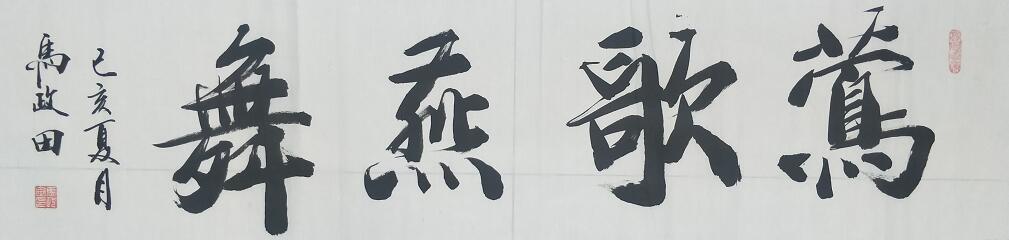 鶯歌燕舞
己亥夏月
馬政田